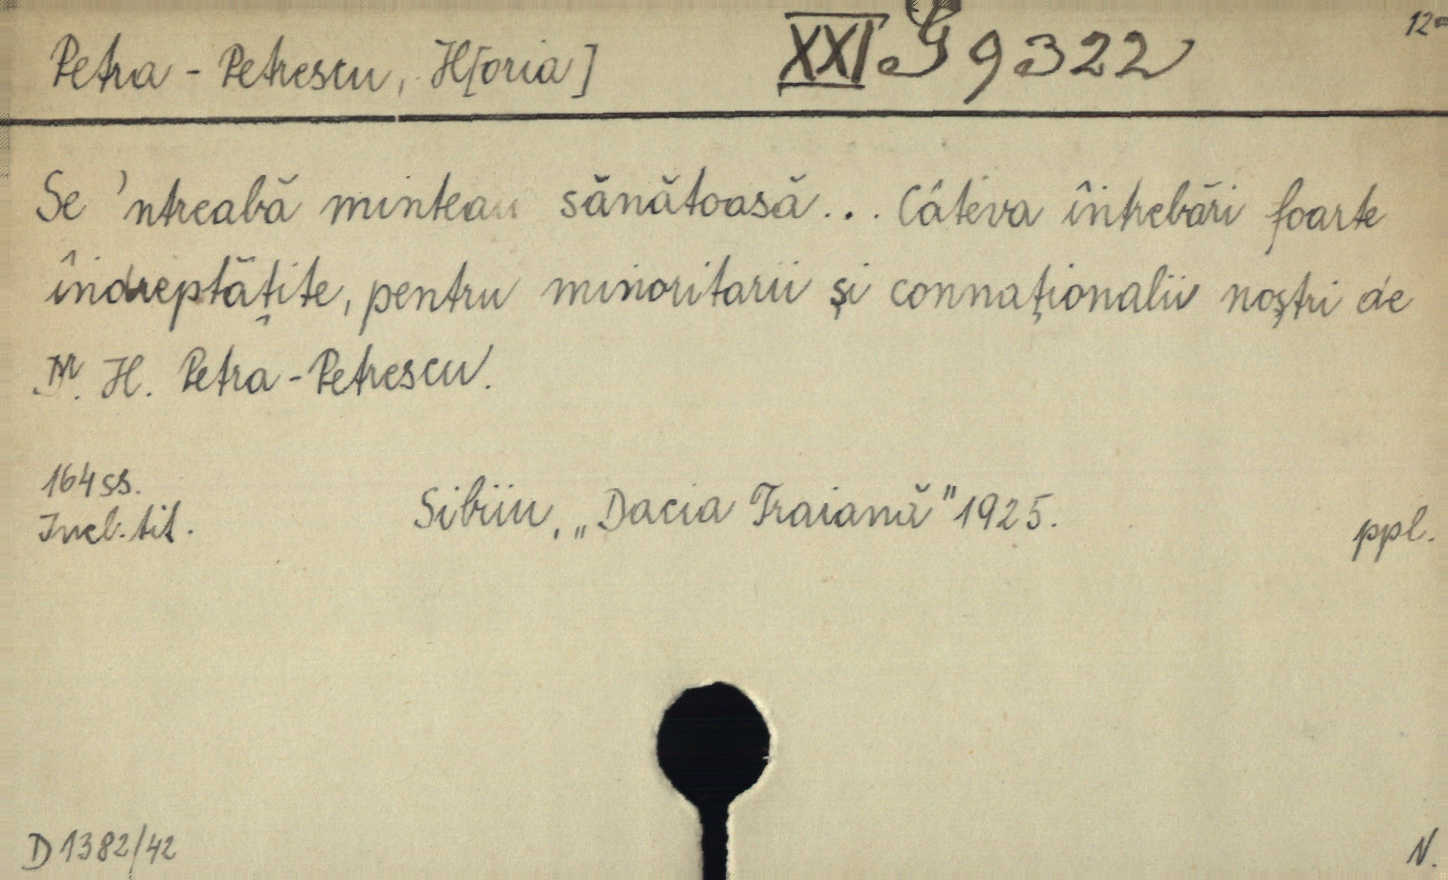 Petra-Petrescu, H[oria] XXI G 9322 12º
Se 'ntreabă mintea sănătoasă... Câteva întrebări foarte
îndreptățite, pentru minoritarii și connaționalii noștri de
Dr. H. Petra-Petrescu.
164 ss.
Incl. tit. Sibiiu, „Dacia Traiană" 1925. ppl.
D 1382/42 N.